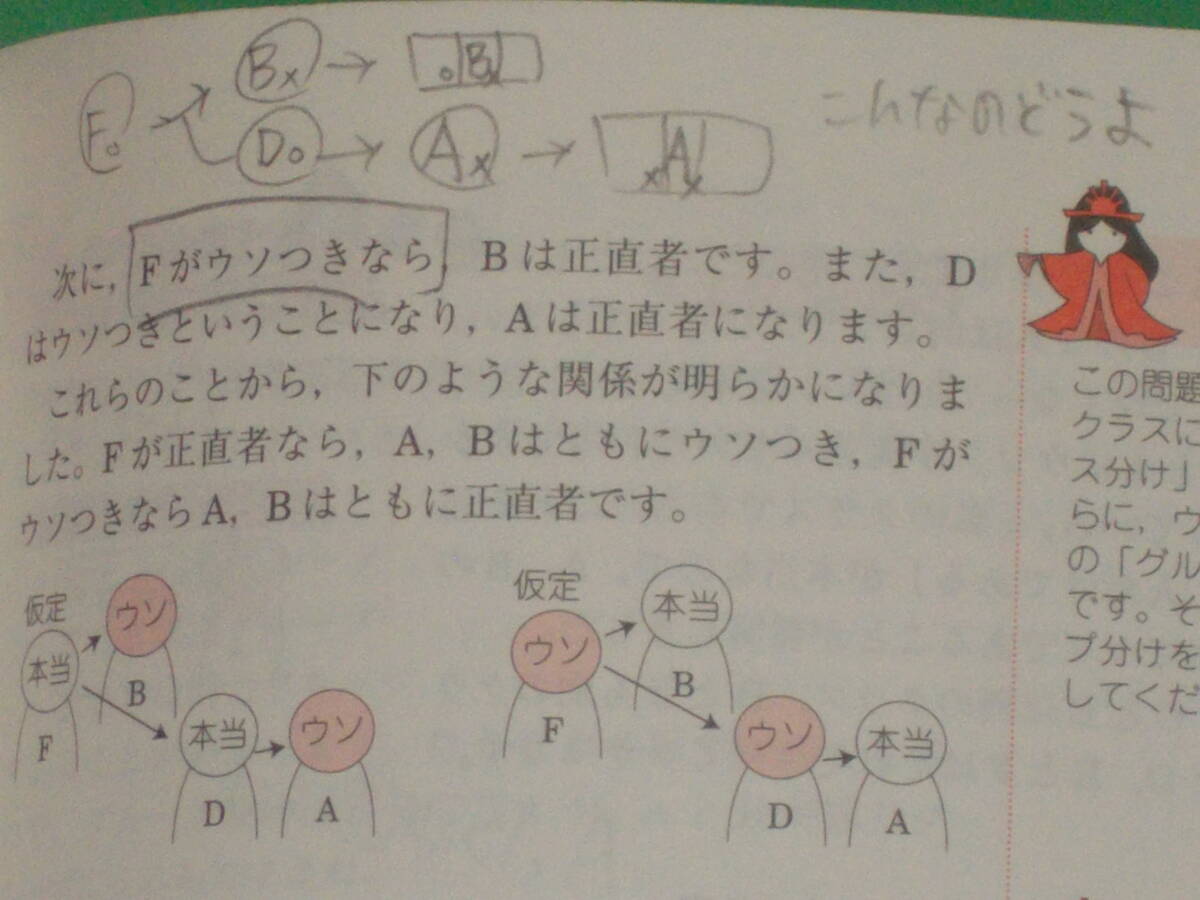 Bx → 。Bx
F。
D。 → Ax → xAx
こんなのどうよ
次に，Fがウソつきなら，Bは正直者です。また，D
はウソつきということになり，Aは正直者になります。
これらのことから，下のような関係が明らかになりま
した。Fが正直者なら，A，Bはともにウソつき，Fが
ウソつきならA，Bはともに正直者です。
仮定
ウソ
本当
B
F
本当
ウソ
D
A
仮定
本当
ウソ
B
F
ウソ
本当
D
A
この問題
クラスに
ス分け」
らに，ウ
の「グル
です。そ
プ分けを
してくだ